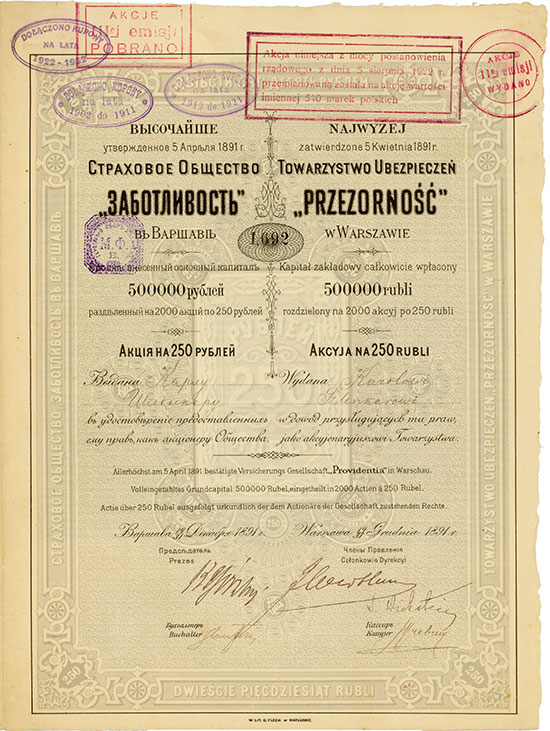 DOŁĄCZONO KUPONY
NA LATA
1922 - 1932
AKCJE
IIej emisji
POBRANO
DOŁĄCZONO KUPONY
na lata
1902 do 1911
na lata
1912 do 1921
Akcja niniejsza z mocy postanowienia
rządowego z dnia 5 sierpnia 1922 r.
przemianowaną została na akcję wartości
imiennej 540 marek polskich
AKCJE
IIej emisji
WYDANO
ВЫСОЧАЙШЕ
утвержденное 5 Апрѣля 1891 г.
СТРАХОВОЕ ОБЩЕСТВО
„ЗАБОТЛИВОСТЬ"
въ ВАРШАВѢ
NAJWYŻEJ
zatwierdzone 5 Kwietnia 1891 r.
TOWARZYSTWO UBEZPIECZEŃ
„PRZEZORNOŚĆ"
w WARSZAWIE
1.692
М.Ф.
внесенный основный капиталъ
500000 рублей
раздѣленный на 2000 акцій по 250 рублей
Kapitał zakładowy całkowicie wpłacony
500000 rubli
rozdzielony na 2000 akcyj po 250 rubli
АКЦІЯ НА 250 РУБЛЕЙ
AKCYJA NA 250 RUBLI
Выдана Карлу
въ удостовѣреніе предоставленныхъ
ему правъ, какъ акціонеру Общества.
Wydana Karolowi
w dowód przysługujących mu praw,
jako akcyonaryjuszowi Towarzystwa.
250
Allerhöchst am 5 April 1891 bestätigte Versicherungs Gesellschaft „Providentia" in Warschau.
Volleingezahltes Grundcapital 500000 Rubel, eingetheilt in 2000 Actien à 250 Rubel.
Actie über 250 Rubel ausgefolgt urkundlich der dem Actionäre der Gesellschaft zustehenden Rechte.
Варшава Декабря 1891 г.
Warszawa Grudnia 1891 r.
Предсѣдатель
Prezes
Члены Правленія
Członkowie Dyrekcyi
Бухгалтеръ
Buchalter
Кассиръ
Kassyer
СТРАХОВОЕ ОБЩЕСТВО „ЗАБОТЛИВОСТЬ" ВЪ ВАРШАВѢ
TOWARZYSTWO UBEZPIECZEŃ „PRZEZORNOŚĆ" W WARSZAWIE
250
DWIEŚCIE PIĘĆDZIESIĄT RUBLI
250
W LIT. G. FLECK W WARSZAWIE.